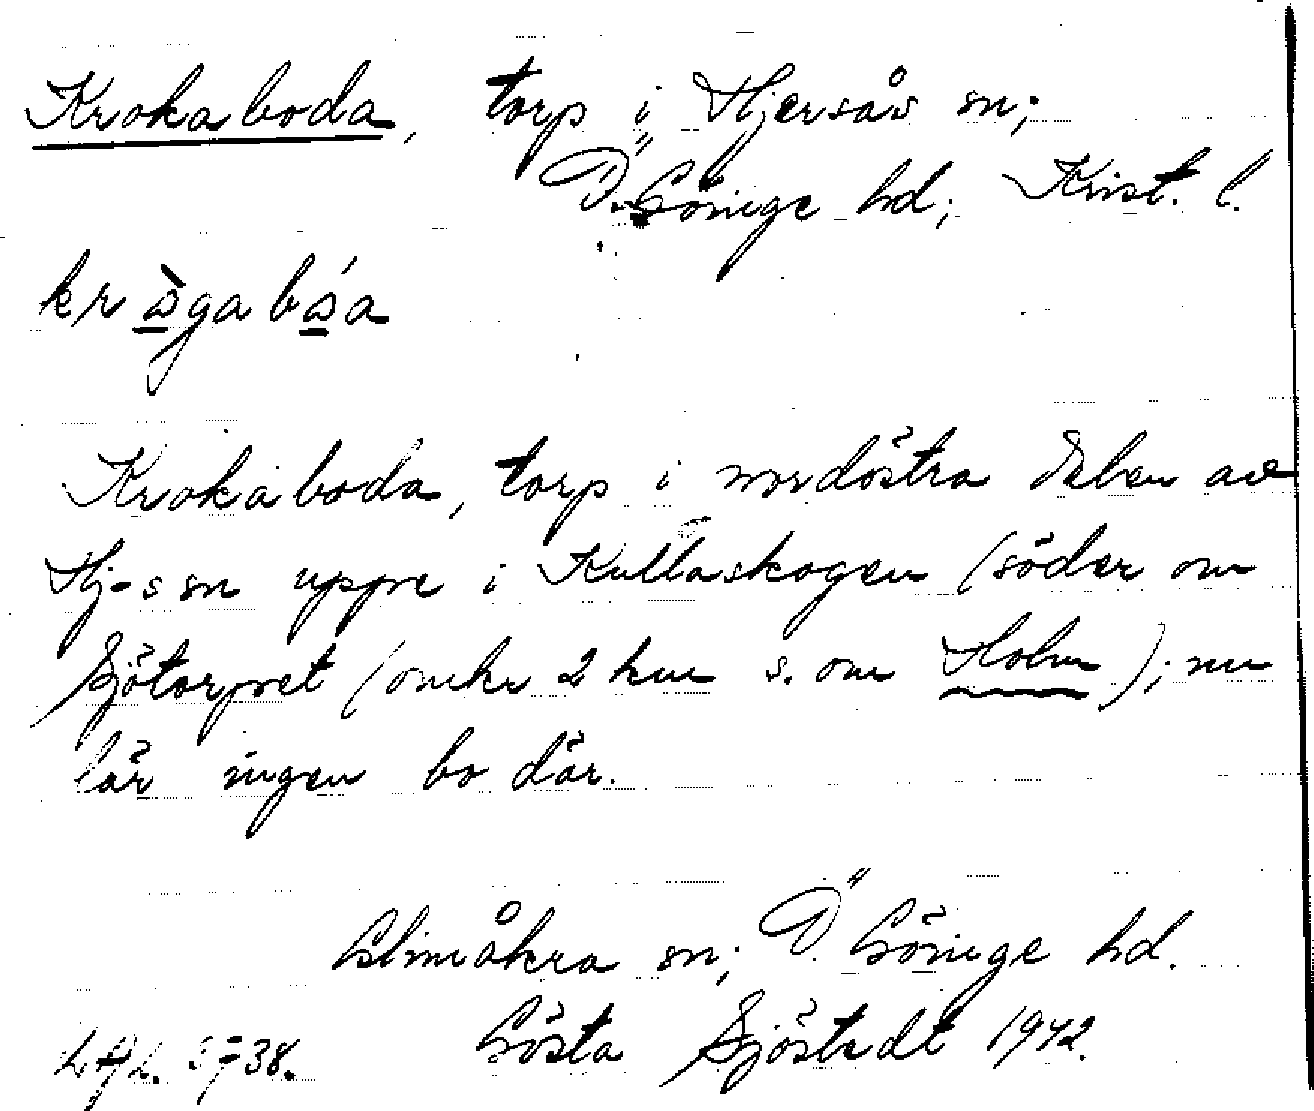 Krokaboda, torp i Hjersås sn;
Ö. Göinge hd; Krist. l.
krògabóa
Krokaboda, torp i nordöstra delen av
Hj-s sn uppe i Kullaskogen (söder om
Sjötorpet (omkr 2 km s. om Holm); nu
lär ingen bo där.
Glimåkra sn; Ö. Göinge hd.
Gösta Sjöstedt 1942.